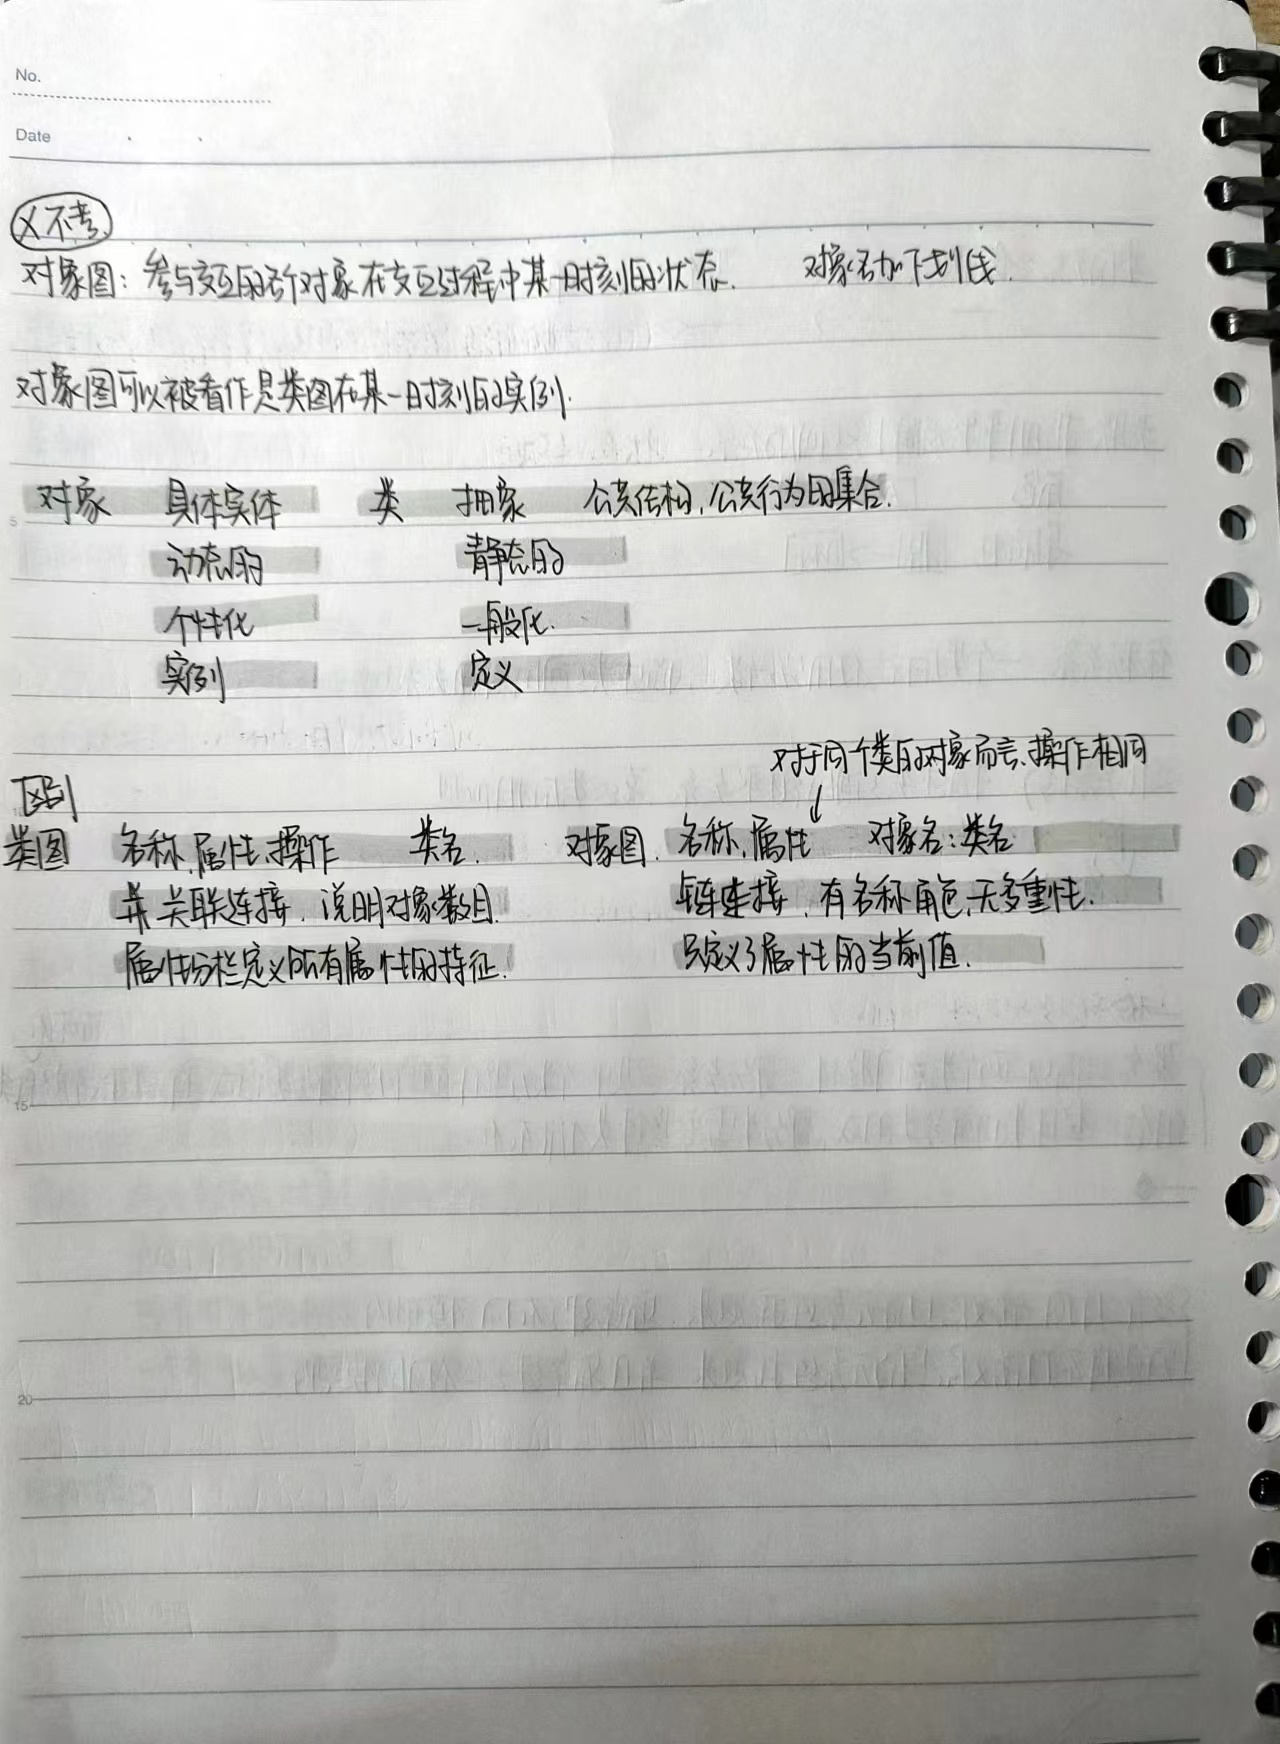 No.
Date
X不考
对象图：参与交互的各个对象在交互过程中某一时刻的状态. 对象名加下划线.
对象图可以被看作是类图在某一时刻的实例.
5
对象 具体实体 类 抽象 公共结构,公共行为的集合.
动态的 静态的
个性化 一般化.
实例 定义
对于同个类的对象而言、操作相同
区别
↓
类图 名称,属性,操作 类名. 对象图. 名称,属性 对象名：类名
关联连接, 说明对象数目. 链连接, 有名称角色,无多重性.
属性分栏定义所有属性的特征. 只定义了属性的当前值.
15
20